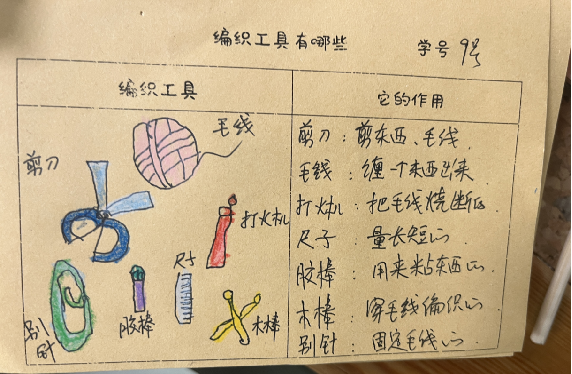 编织工具有哪些
学号 9号
编织工具
它的作用
毛线
剪刀
打火机
尺子
别针
胶棒
木棒
剪刀：剪东西、毛线.
毛线：缠一个东西出来.
打火机：把毛线烧断的.
尺子：量长短的.
胶棒：用来粘东西的.
木棒：穿毛线编织的.
别针：固定毛线的.